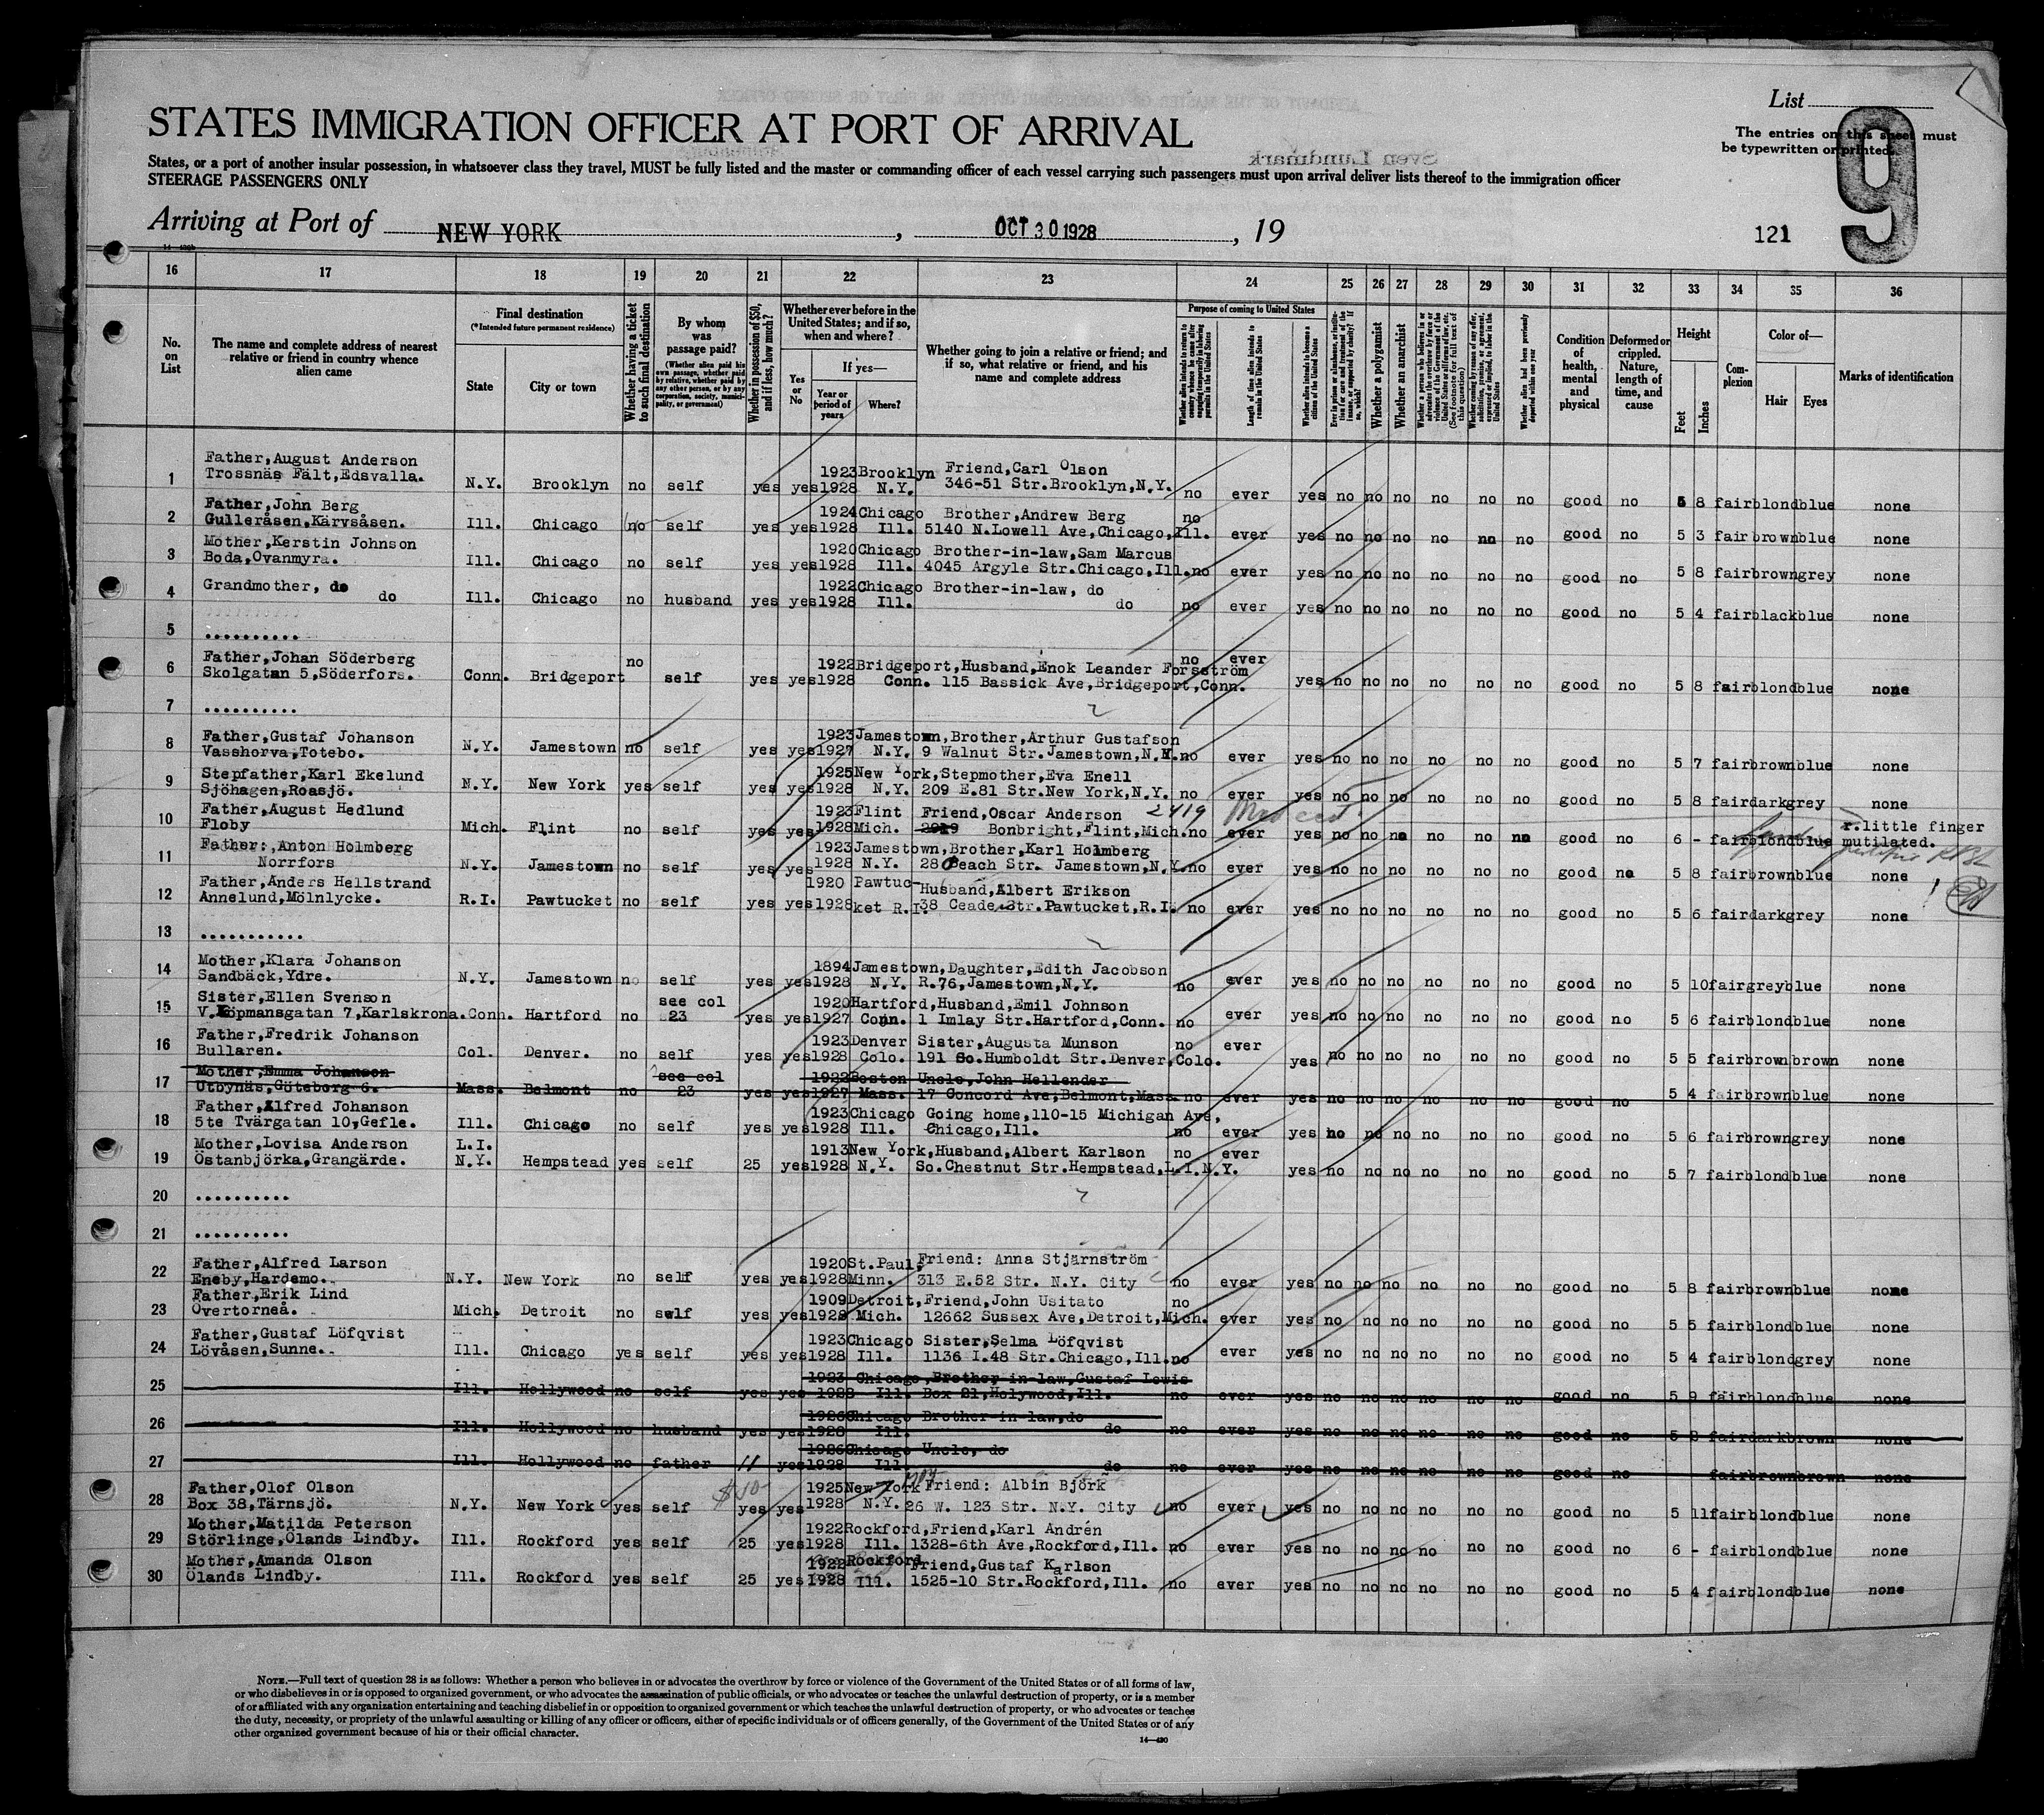 List
9
STATES IMMIGRATION OFFICER AT PORT OF ARRIVAL
The entries on this sheet must
be typewritten or printed.
Sven Lundmark
States, or a port of another insular possession, in whatsoever class they travel, MUST be fully listed and the master or commanding officer of each vessel carrying such passengers must upon arrival deliver lists thereof to the immigration officer
STEERAGE PASSENGERS ONLY
Arriving at Port of NEW YORK , OCT 30 1928 , 19
121
16 17 18 19 20 21 22 23 24 25 26 27 28 29 30 31 32 33 34 35 36
No. on List
The name and complete address of nearest relative or friend in country whence alien came
Final destination
(*Intended future permanent residence)
State
City or town
Whether having a ticket to such final destination
By whom was passage paid?
(Whether alien paid his own passage, whether paid by relative, whether paid by any other person, or by any corporation, society, municipality, or government)
Whether in possession of $50, and if less, how much?
Whether ever before in the United States; and if so, when and where?
Yes or No
If yes—
Year or period of years
Where?
Whether going to join a relative or friend; and if so, what relative or friend, and his name and complete address
Purpose of coming to United States
Whether alien intends to return to country whence he came after engaging temporarily in laboring pursuits in the United States
Length of time alien intends to remain in the United States
Whether alien intends to become a citizen of the United States
Whether a polygamist
Whether an anarchist
Whether alien had been previously deported within one year
Condition of health, mental and physical
Deformed or crippled. Nature, length of time, and cause
Height
Feet
Inches
Complexion
Color of—
Hair
Eyes
Marks of identification
1 Father,August Anderson 1923 Brooklyn Friend,Carl Olson
Trossnäs Fält,Edsvalla. N.Y. Brooklyn no self yes yes 1928 N.Y. 346-51 Str.Brooklyn,N.Y. no ever yes no no no no no no good no 5 8 fair blond blue none
2 Father,John Berg 1924 Chicago Brother,Andrew Berg
Gulleråsen,Kärvsåsen. Ill. Chicago no self yes yes 1928 Ill. 5140 N.Lowell Ave,Chicago,Ill. no ever yes no no no no no no good no 5 3 fair brown blue none
3 Mother,Kerstin Johnson 1920 Chicago Brother-in-law,Sam Marcus
Boda,Ovanmyra. Ill. Chicago no self yes yes 1928 Ill. 4045 Argyle Str.Chicago,Ill. no ever yes no no no no no no good no 5 8 fair brown grey none
4 Grandmother, do 1922 Chicago Brother-in-law, do
do Ill. Chicago no husband yes yes 1928 Ill. do no ever yes no no no no no no good no 5 4 fair black blue none
5 ..........
6 Father,Johan Söderberg no 1922 Bridgeport,Husband,Enok Leander Forsström no ever
Skolgatan 5,Söderfors. Conn. Bridgeport self yes yes 1928 Conn. 115 Bassick Ave,Bridgeport,Conn. yes no no no no no no good no 5 8 fair blond blue none
7 ..........
8 Father,Gustaf Johanson 1923 Jamestown,Brother,Arthur Gustafson
Vasshorva,Totebo. N.Y. Jamestown no self yes yes 1927 N.Y. 9 Walnut Str.Jamestown,N.Y. no ever yes no no no no no no good no 5 7 fair brown blue none
9 Stepfather,Karl Ekelund 1925 New York,Stepmother,Eva Enell
Sjöhagen,Roasjö. N.Y. New York yes self yes yes 1928 N.Y. 209 E.81 Str.New York,N.Y. no ever yes no no no no no no good no 5 8 fair dark grey none
10 Father,August Hedlund 1923 Flint Friend,Oscar Anderson 2419
Floby Mich. Flint no self yes yes 1928 Mich. Bonbright,Flint,Mich. no ever yes no no no no no no good no 6 - fair blond blue r.little finger mutilated.
11 Father:,Anton Holmberg 1923 Jamestown,Brother,Karl Holmberg
Norrfors N.Y. Jamestown no self yes yes 1928 N.Y. 28 Beach Str. Jamestown,N.Y. no ever yes no no no no no no good no 5 8 fair brown blue none
12 Father,Anders Hellstrand 1920 Pawtuc- Husband,Albert Erikson
Annelund,Mölnlycke. R.I. Pawtucket no self yes yes 1928 ket R.I. 38 Ceader Str.Pawtucket,R.I. no ever yes no no no no no no good no 5 6 fair dark grey none
13 ...........
14 Mother,Klara Johanson 1894 Jamestown,Daughter,Edith Jacobson
Sandbäck,Ydre. N.Y. Jamestown no self yes yes 1928 N.Y. R.76,Jamestown,N.Y. no ever yes no no no no no no good no 5 10 fair grey blue none
15 Sister,Ellen Svenson see col 1920 Hartford,Husband,Emil Johnson
V.Köpmansgatan 7,Karlskrona. Conn. Hartford no 23 yes yes 1927 Conn. 1 Imlay Str.Hartford,Conn. no ever yes no no no no no no good no 5 6 fair blond blue none
16 Father,Fredrik Johanson 1923 Denver Sister,Augusta Munson no ever
Bullaren. Col. Denver. no self yes yes 1928 Colo. 191 So.Humboldt Str.Denver,Colo. yes no no no no no no good no 5 5 fair brown brown none
17 Mother,Emma Johanson see col 1922 Boston Uncle,John Hellender
Utbynäs,Göteborg 6. Mass. Belmont no 23 yes yes 1927 Mass. 17 Concord Ave,Belmont,Mass. no ever yes no no no no no no good no 5 4 fair brown blue none
18 Father,Alfred Johanson 1923 Chicago Going home,110-15 Michigan Ave,
5te Tvärgatan 10,Gefle. Ill. Chicago no self yes yes 1928 Ill. Chicago,Ill. no ever yes no no no no no no good no 5 6 fair brown grey none
19 Mother,Lovisa Anderson L.I. 1913 New York,Husband,Albert Karlson no ever
Östanbjörka,Grangärde. N.Y. Hempstead yes self 25 yes 1928 N.Y. So.Chestnut Str.Hempstead,L.I.N.Y. yes no no no no no no good no 5 7 fair blond blue none
20 ..........
21 ..........
22 Father,Alfred Larson 1920 St.Paul, Friend: Anna Stjärnström
Eneby,Hardemo. N.Y. New York no self yes yes 1928 Minn. 313 E.52 Str. N.Y. City no ever yes no no no no no no good no 5 8 fair brown blue none
23 Father,Erik Lind 1909 Detroit,Friend,John Usitato no
Övertorneå. Mich. Detroit no self yes yes 1928 Mich. 12662 Sussex Ave,Detroit,Mich. ever yes no no no no no no good no 5 5 fair blond blue none
24 Father,Gustaf Löfqvist 1923 Chicago Sister,Selma Löfqvist
Lövåsen,Sunne. Ill. Chicago yes self yes yes 1928 Ill. 1136 I.48 Str.Chicago,Ill. no ever yes no no no no no no good no 5 4 fair blond grey none
25 1923 Chicago,Brother-in-law,Gustaf Lewis
Ill. Hollywood no self yes yes 1928 Ill. Box 21,Holywood,Ill. no ever yes no no no no no no good no 5 9 fair blond blue none
26 1926 Chicago Brother-in-law,do
Ill. Hollywood no husband yes yes 1928 Ill. do no ever yes no no no no no no good no 5 fair dark brown none
27 1926 Chicago Uncle, do
Ill. Hollywood no father 11 yes 1928 Ill. do no ever yes no no no no no no good no fair brown brown none
28 Father,Olof Olson 1925 New York Friend: Albin Björk
Box 38,Tärnsjö. N.Y. New York yes self yes yes 1928 N.Y. 26 W. 123 Str. N.Y. City no ever yes no no no no no no good no 5 11 fair blond blue none
29 Mother,Matilda Peterson 1922 Rockford,Friend,Karl Andrén
Störlinge,Ölands Lindby. Ill. Rockford yes self 25 yes 1928 Ill. 1328-6th Ave,Rockford,Ill. no ever yes no no no no no no good no 6 - fair blond blue none
30 Mother,Amanda Olson 1922 Rockford Friend,Gustaf Karlson
Ölands Lindby. Ill. Rockford yes self 25 yes 1928 Ill. 1525-10 Str.Rockford,Ill. no ever yes no no no no no no good no 5 4 fair blond blue none
NOTE.—Full text of question 28 is as follows: Whether a person who believes in or advocates the overthrow by force or violence of the Government of the United States or of all forms of law,
or who disbelieves in or is opposed to organized government, or who advocates the assassination of public officials, or who advocates or teaches the unlawful destruction of property, or is a member
of or affiliated with any organization entertaining and teaching disbelief in or opposition to organized government or which teaches the unlawful destruction of property, or who advocates or teaches
the duty, necessity, or propriety of the unlawful assaulting or killing of any officer or officers, either of specific individuals or of officers generally, of the Government of the United States or of any
other organized government because of his or their official character.
14—430